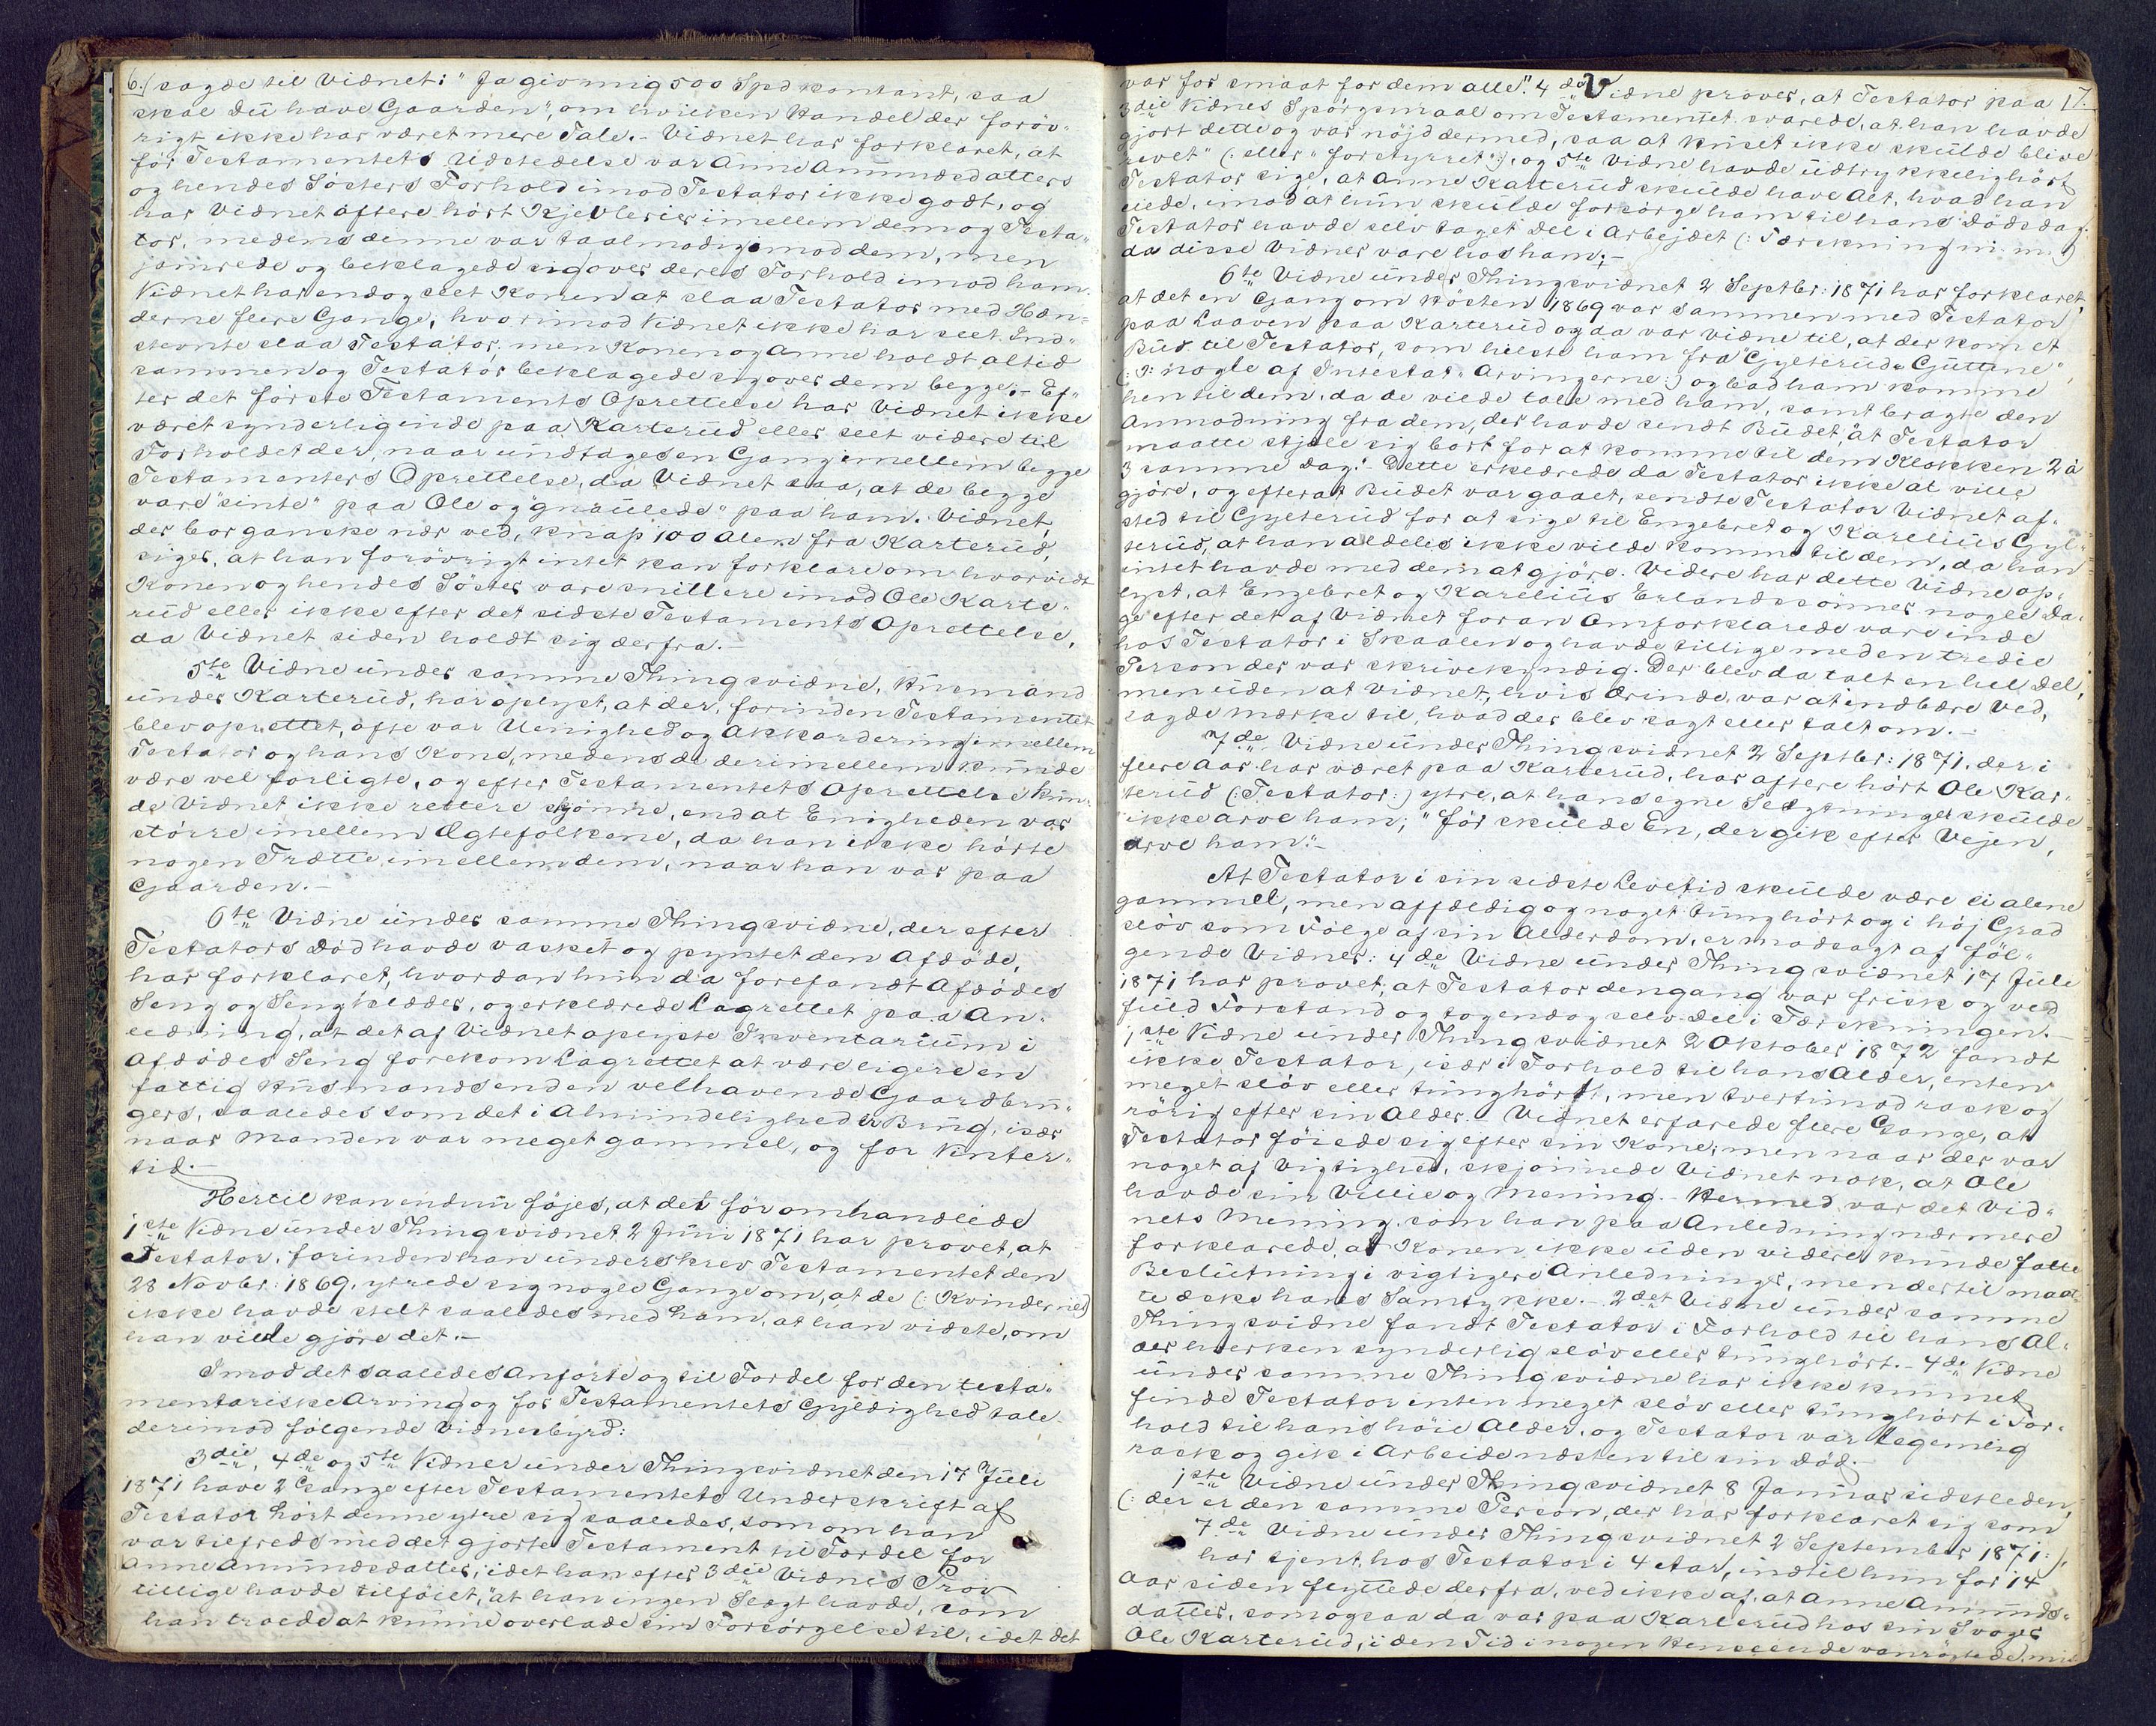 6./ sagde til Vidnet: "Ja giv mig 500 Spd kontant, saa
skal Du have Gaarden", om hvilken Handel der forøv-
rigt ikke har været mere Tale.- Vidnet har forklaret, at
før Testamentets Udstedelse var Anne Amundsdatters
og hendes Søsters Forhold imod Testator ikke godt, og
har Vidnet oftere hørt Kjevlerier imellem dem og Testa-
tor, medens denne var taalmodig imod dem, men
jamrede og beklagede sig over deres Forhold imod ham.
Vidnet har endog seet Konen at slaa Testator med Hæn-
derne flere Gange, hvorimod Vidnet ikke har seet Ind-
stevnte slaa Testator; men Konen og Anne holdt altid
sammen og Testator beklagede sig over dem begge.- Ef-
ter det første Testaments Oprettelse har Vidnet ikke
været synderlig inde paa Karterud eller seet videre til
Forholdet der, naar undtages en Gang imellem begge
Testamenters Oprettelse, da Vidnet saa, at de begge
vare "sinte" paa Ole og "gnaulede" paa ham. Vidnet,
der bor ganske nær ved, knap 100 Alen fra Karterud,
siger, at han forøvrigt intet kan forklare om hvorvidt
Konen og hendes Søster vare snillere imod Ole Karte-
rud eller ikke efter det sidste Testaments Oprettelse,
da Vidnet siden holdt sig derfra.-
5te Vidne under samme Thingsvidne, Husmand
under Karterud, har oplyst, at der, forinden Testamentet
blev oprettet, ofte var Uenighed og Akkordering imellem
Testator og hans Kone, medens de derimellem kunde
være vel forligte, og efter Testamentets Oprettelse kun-
de Vidnet ikke rettere skjønne, end at Enigheden var
større imellem Ægtefolkene, da han ikke hørte
nogen Trætte imellem dem, naar han var paa
Gaarden.-
6te Vidne under samme Thingsvidne, der efter
Testators Død havde vasket og pyntet den Afdøde,
har forklaret, hvordan hun da forefandt Afdødes
Seng og Sengklæder, og erklærede Lagrettet paa An-
ledning, at det af Vidnet oplyste Inventarium i
Afdødes Seng forekom Lagrettet at være ligere en
fattig Husmands end en velhavende Gaardbru-
gers, saaledes som det i Almindelighed er Brug, især
naar Manden var meget gammel, og for Vinter-
tid.-
Hertil kan endnu føjes, at det før omhandlede
1ste Vidne under Thingsvidnet 2 Juni 1871 har provet, at
Testator, forinden han underskrev Testamentet den
28 Novbr: 1869, ytrede sig nogle Gange om, at de (: Kvinderne:)
ikke havde stelt saaledes med ham, at han vidste, om
han vilde gjøre det.-
Imod det saaledes Anførte og til Fordel for den testa-
mentariske Arving og for Testamentets Gyldighed tale
derimod følgende Vidnesbyrd:
3die, 4de og 5te Vidner under Thingsvidnet den 17 Juli
1871 have 2 Gange efter Testamentets Underskrift af
Testator hørt denne ytre sig saaledes, som om han
var tilfreds med det gjorte Testament til Fordel for
Anne Amundsdatter, idet han efter 3die Vidnes Prov
tillige havde tilføiet, "at han ingen Slægt havde, som
han troede at kunne overlade sin Forsørgelse til, idet det
var for smaat for dem alle". 4de Vidne prover, at Testator paa 17.
3die Vidnes Spørgsmaal om Testamentet svarede, at han havde
gjort dette og var nøjd dermed, saa at Huset ikke skulde blive
revet" (: eller "forstyrret":), og 5te Vidne havde udtrykkelig hørt
Testator sige, at Anne Karterud skulde have Alt, hvad han
eiede, imod at hun skulde forsørge ham til hans Dødsdag.
Testator havde selv taget Del i Arbejdet (: Tærskning m. m.:)
da disse Vidner vare hos ham.-
6te Vidne under Thingsvidnet 2 Septbr: 1871 har forklaret,
at det en Gang om Høsten 1869 var sammen med Testator
paa Laaven paa Karterud og da var Vidne til, at der kom et
Bud til Testator, som hilste ham fra "Gylterud-Guttene",
(: ɔ: nogle af Intestat-Arvingerne:) og bad ham komme
hen til dem, da de vilde tale med ham, samt bragte den
Anmodning fra dem, der havde sendt Budet, "at Testator
maatte stjæle sig bort for at komme til dem Klokken 2 à
3 samme Dag".- Dette erklærede da Testator ikke at ville
gjøre, og efterat Budet var gaaet, sendte Testator Vidnet af-
sted til Gylterud for at sige til Engebret og Karelius Gyl-
terud, at han aldeles ikke vilde komme til dem, da han
intet havde med dem at gjøre. Videre har dette Vidne op-
lyst, at Engebret og Karelius Erlandssønner nogle Da-
ge efter det af Vidnet foran Omforklarede vare inde
hos Testator i Skaalen og havde tillige med en tredie
Person der var skrivekyndig. Der blev da talt en hel Del,
men uden at Vidnet, hvis Ærinde var at indbære Ved,
lagde Mærke til, hvad der blev sagt eller talt om.-
7de Vidne under Thingsvidnet 2 Septbr: 1871, der i
flere Aar har været paa Karterud, har oftere hørt Ole Kar-
terud (: Testator:) ytre, at hans egne Slægtninger skulde
ikke arve ham; "før skulde En, der gik efter Vejen,
arve ham".-
At Testator i sin sidste Levetid skulde være ei alene
gammel, men affældig og noget tunghørt og i høj Grad
sløv som Følge af sin Alderdom, er modsagt af føl-
gende Vidner: 4de Vidne under Thingsvidnet 17 Juli
1871 har provet, at Testator dengang var frisk og ved
fuld Forstand og tog endog selv Del i Tærskningen.-
1ste Vidne under Thingsvidnet 2 Oktober 1872 fandt
ikke Testator, især i Forhold til hans Alder, enten
meget sløv eller tunghørt, men tvertimod rask og
rørig efter sin Alder.- Vidnet erfarede flere Gange, at
Testator føiede sig efter sin Kone; men naar der var
noget af Vigtighed, skjønnede Vidnet nok, at Ole
havde sin Villie og Mening.- Hermed var det Vid-
nets Mening, som han paa Anledning nærmere
forklarede, at Konen ikke uden videre kunde fatte
Beslutning i vigtigere Anledninger, men dertil maat-
te æske hans Samtykke.- 2det Vidne under samme
Thingsvidne fandt Testator i Forhold til hans Al-
der hverken synderlig sløv eller tunghørt.- 4de Vidne
under samme Thingsvidne har ikke kunnet
finde Testator enten meget sløv eller tunghørt i For-
hold til hans høie Alder, og Testator var legemlig
rask og gik i Arbeide næsten til sin Død.-
1ste Vidne under Thingsvidnet 8 Januar sidstleden,
(: der er den samme Person, der har forklaret sig som
7de Vidne under Thingsvidnet 2 September 1871:),
har tjent hos Testator i 4 Aar, indtil hun for 14
Aar siden flyttede derfra, ved ikke af, at Anne Amunds-
datter, som ogsaa da var paa Karterud hos sin Svoger
Ole Karterud, i den Tid i nogen Henseende vanrøgtede, mis-